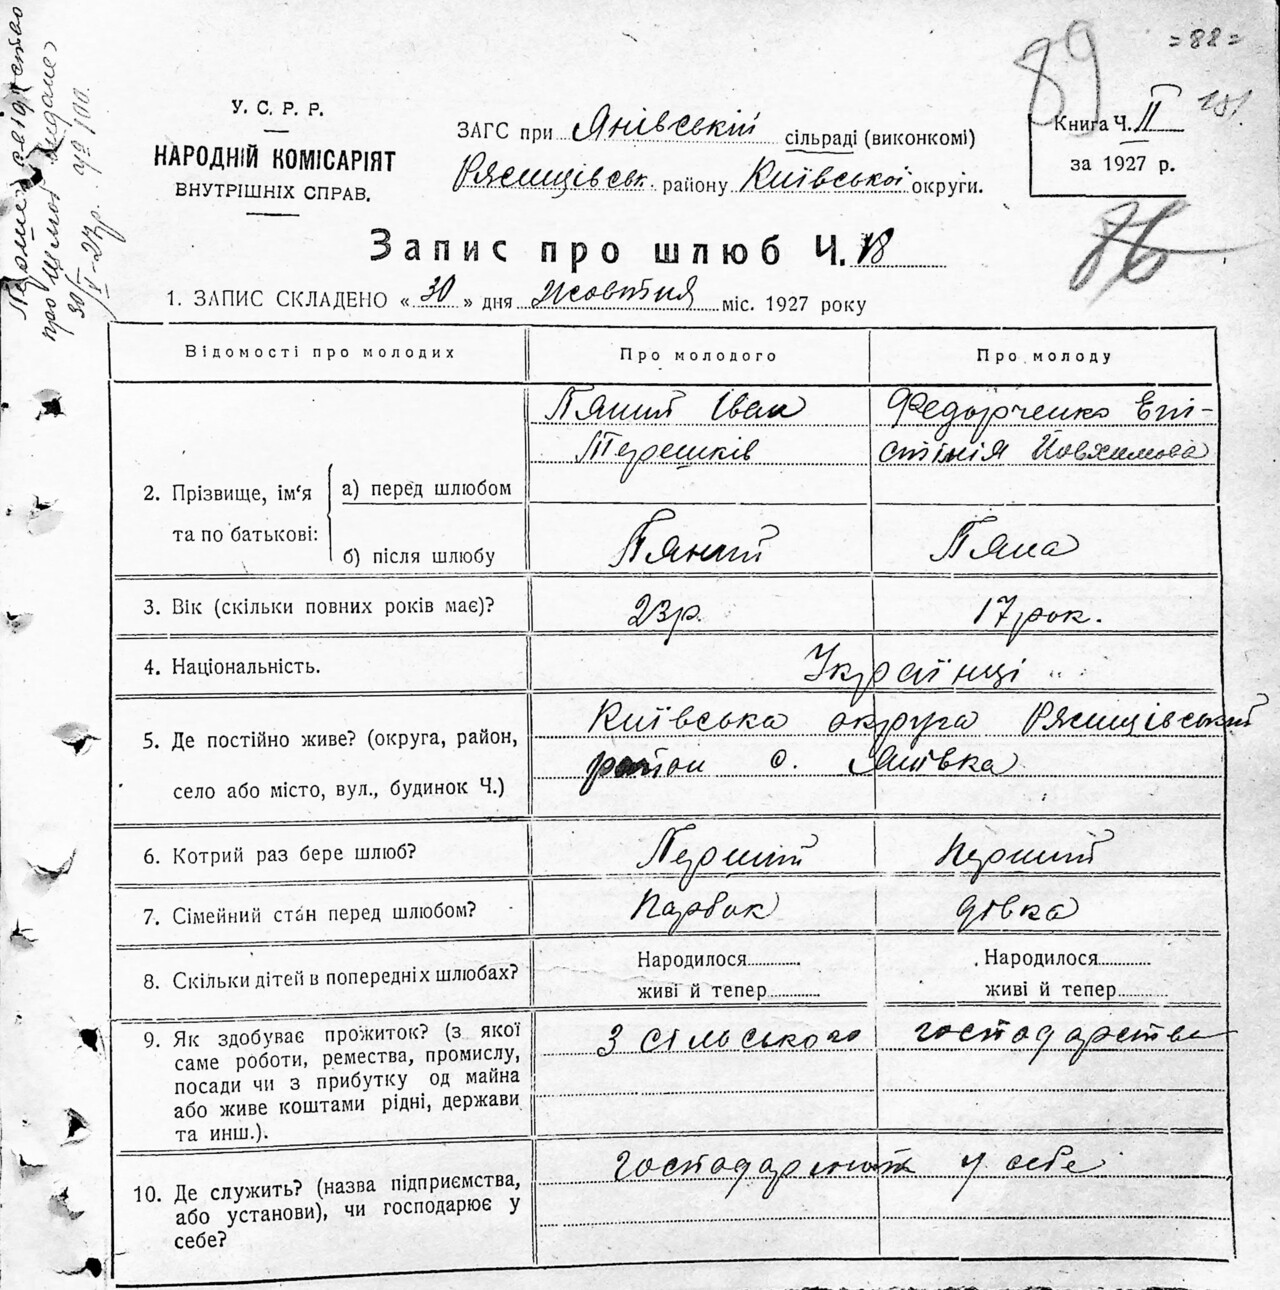 89
=88=
181
У. С. Р. Р.
НАРОДНІЙ КОМІСАРІЯТ
ВНУТРІШНІХ СПРАВ.
ЗАГС при Янівській сільраді (виконкомі)
Ржищівськ. району Київської округи.
Книга Ч. II
за 1927 р.
86
Запис про шлюб Ч. 18
1. ЗАПИС СКЛАДЕНО « 30 » дня Жовтня міс. 1927 року
про шлюб видане
Відомості про молодих
Про молодого
Про молоду
2. Прізвище, ім'я та по батькові:
а) перед шлюбом
Пяний Іван
Терешків
Федорченко Епі-
стімія Йовхимова
б) після шлюбу
Пяний
Пяна
3. Вік (скільки повних років має)?
23р.
17 рок.
4. Національність.
Українці
5. Де постійно живе? (округа, район,
село або місто, вул., будинок Ч.)
Київська округа Ржищівський
район с. Янівка
6. Котрий раз бере шлюб?
Перший
Перший
7. Сімейний стан перед шлюбом?
Парубок
дівка
8. Скільки дітей в попередніх шлюбах?
Народилося
живі й тепер
Народилося
живі й тепер
9. Як здобуває прожиток? (з якої
саме роботи, ремества, промислу,
посади чи з прибутку од майна
або живе коштами рідні, держави
та инш.).
З сільського господарства
10. Де служить? (назва підприємства,
або установи), чи господарює у
себе?
господарюють у себе